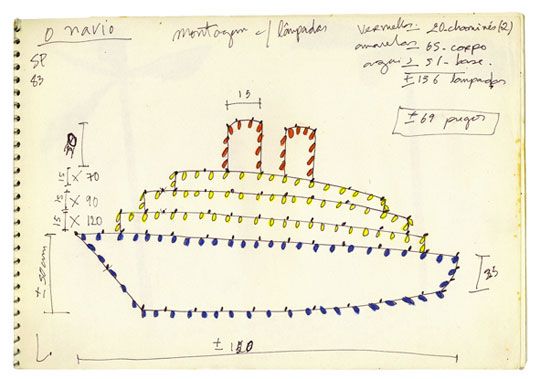 o navio
montagem c/ lâmpadas
vermelhas 20-chaminés (2)
amarelas 65-corpo
azuis 51-base.
± 136 lâmpadas
SP
83
± 69 pregos
15
30
15 X 70
15 X 90
15 X 120
± 50cm
25
± 150